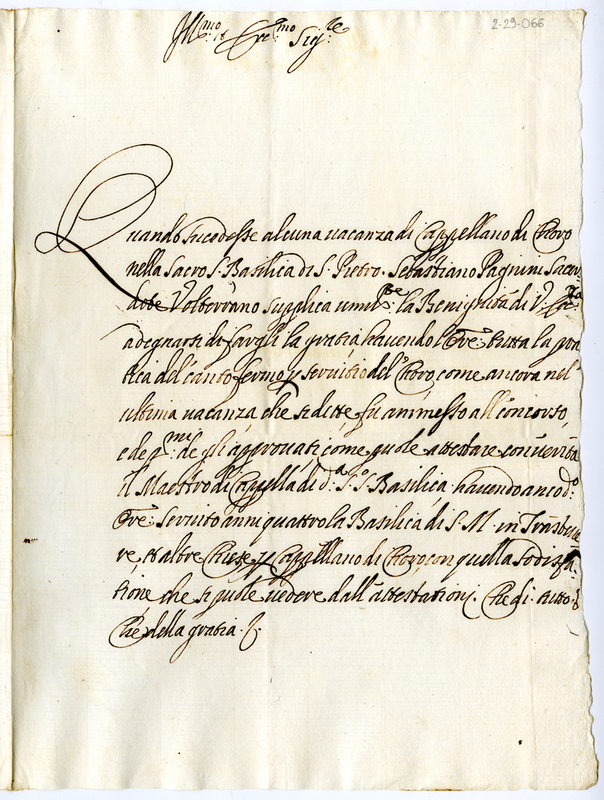 2-29-066
Ill.mo et Rev.mo Sig.re
Quando sucedesse alcuna vacanza di Cappellano di Choro
nella Sacro S. Basilica di S. Pietro. Sebastiano Pagnini Sacer
dote Volterrano supplica umil.te la Benignità di V.
a degnarsi di fargli la gratia havendo l'Ore. tutta la pra
tica del canto fermo, e servitio del Choro, come ancora nel
ultima vacanza che si dette, fu ammesso all concorso,
e de p.mi de gli approvati come puole attestare con verità
il Maestro di Capella di d.a S. S. Basilica. havendo anco d.o
Ore. Servito anni quattro la Basilica di S. M. in Trasteve
re, et altre Chiese p Cappellano di Choro, con quella sodisfa
tione che si puole vedere dall'attestationi. Che di tutto
che della gratia.